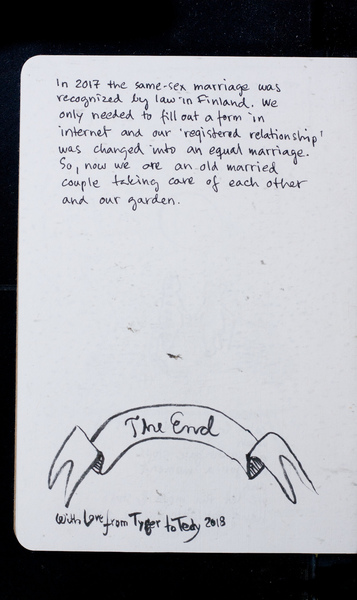 In 2017 the same-sex marriage was
recognized by law in Finland. We
only needed to fill out a form in
internet and our 'registered relationship'
was changed into an equal marriage.
So, now we are an old married
couple taking care of each other
and our garden.
The End
With Love from Tyger to Tedy 2018